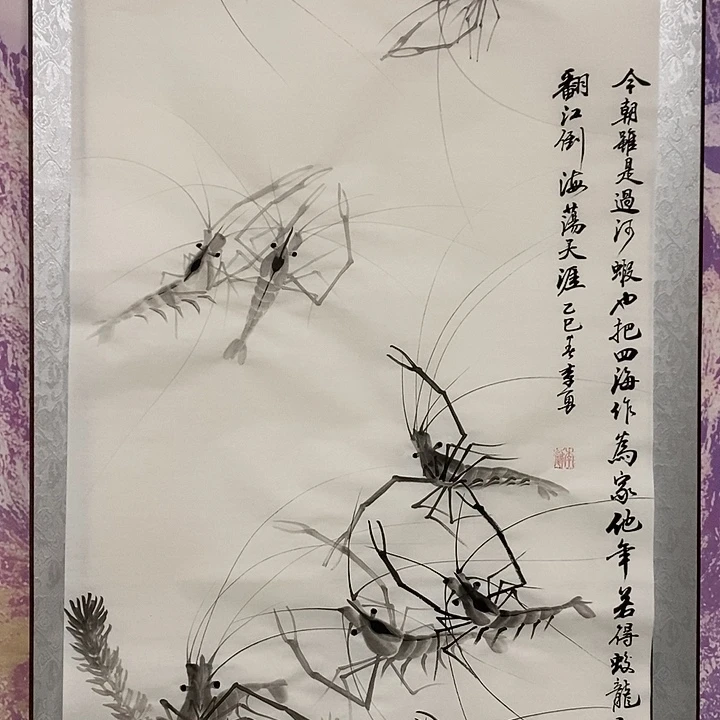 今朝雖是過河蝦也把四海作為家他年若得蛟龍
翻江倒海蕩天涯乙巳春李勇